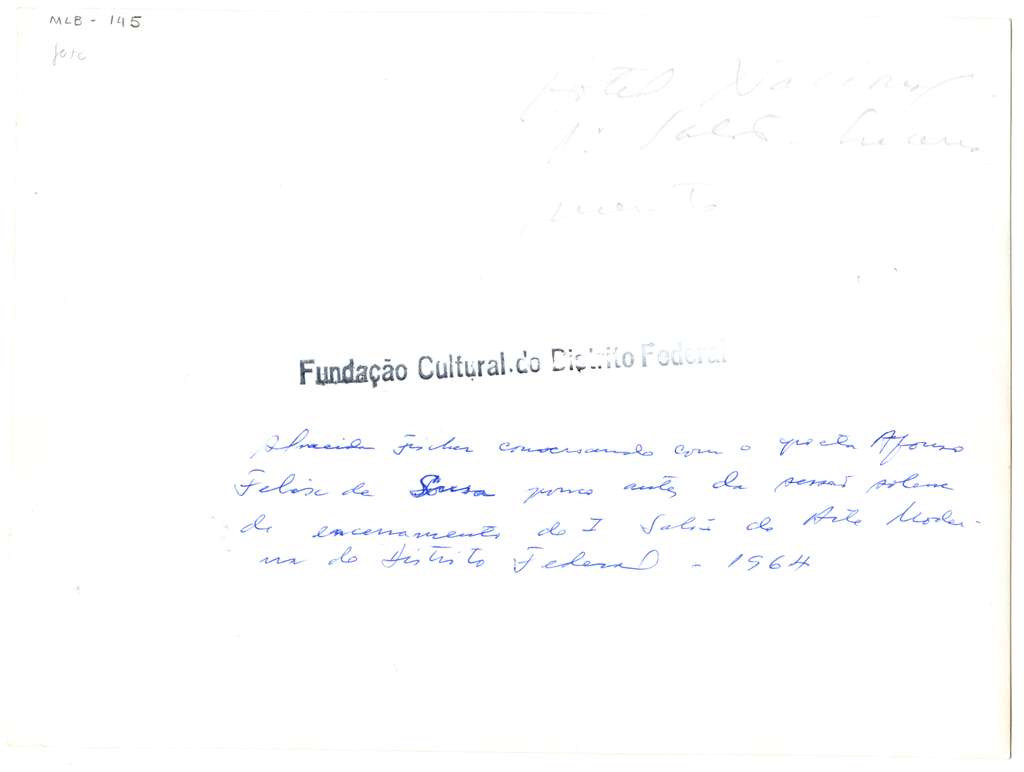 MLB - 145
foto
Hotel Nacional.
1º Salão. Encerra
mento
Fundação Cultural do Distrito Federal
Almeida Fischer conversando com o poeta Afonso
Felix de Sousa pouco antes da sessão solene
de encerramento do I Salão de Arte Moder-
na do Distrito Federal - 1964